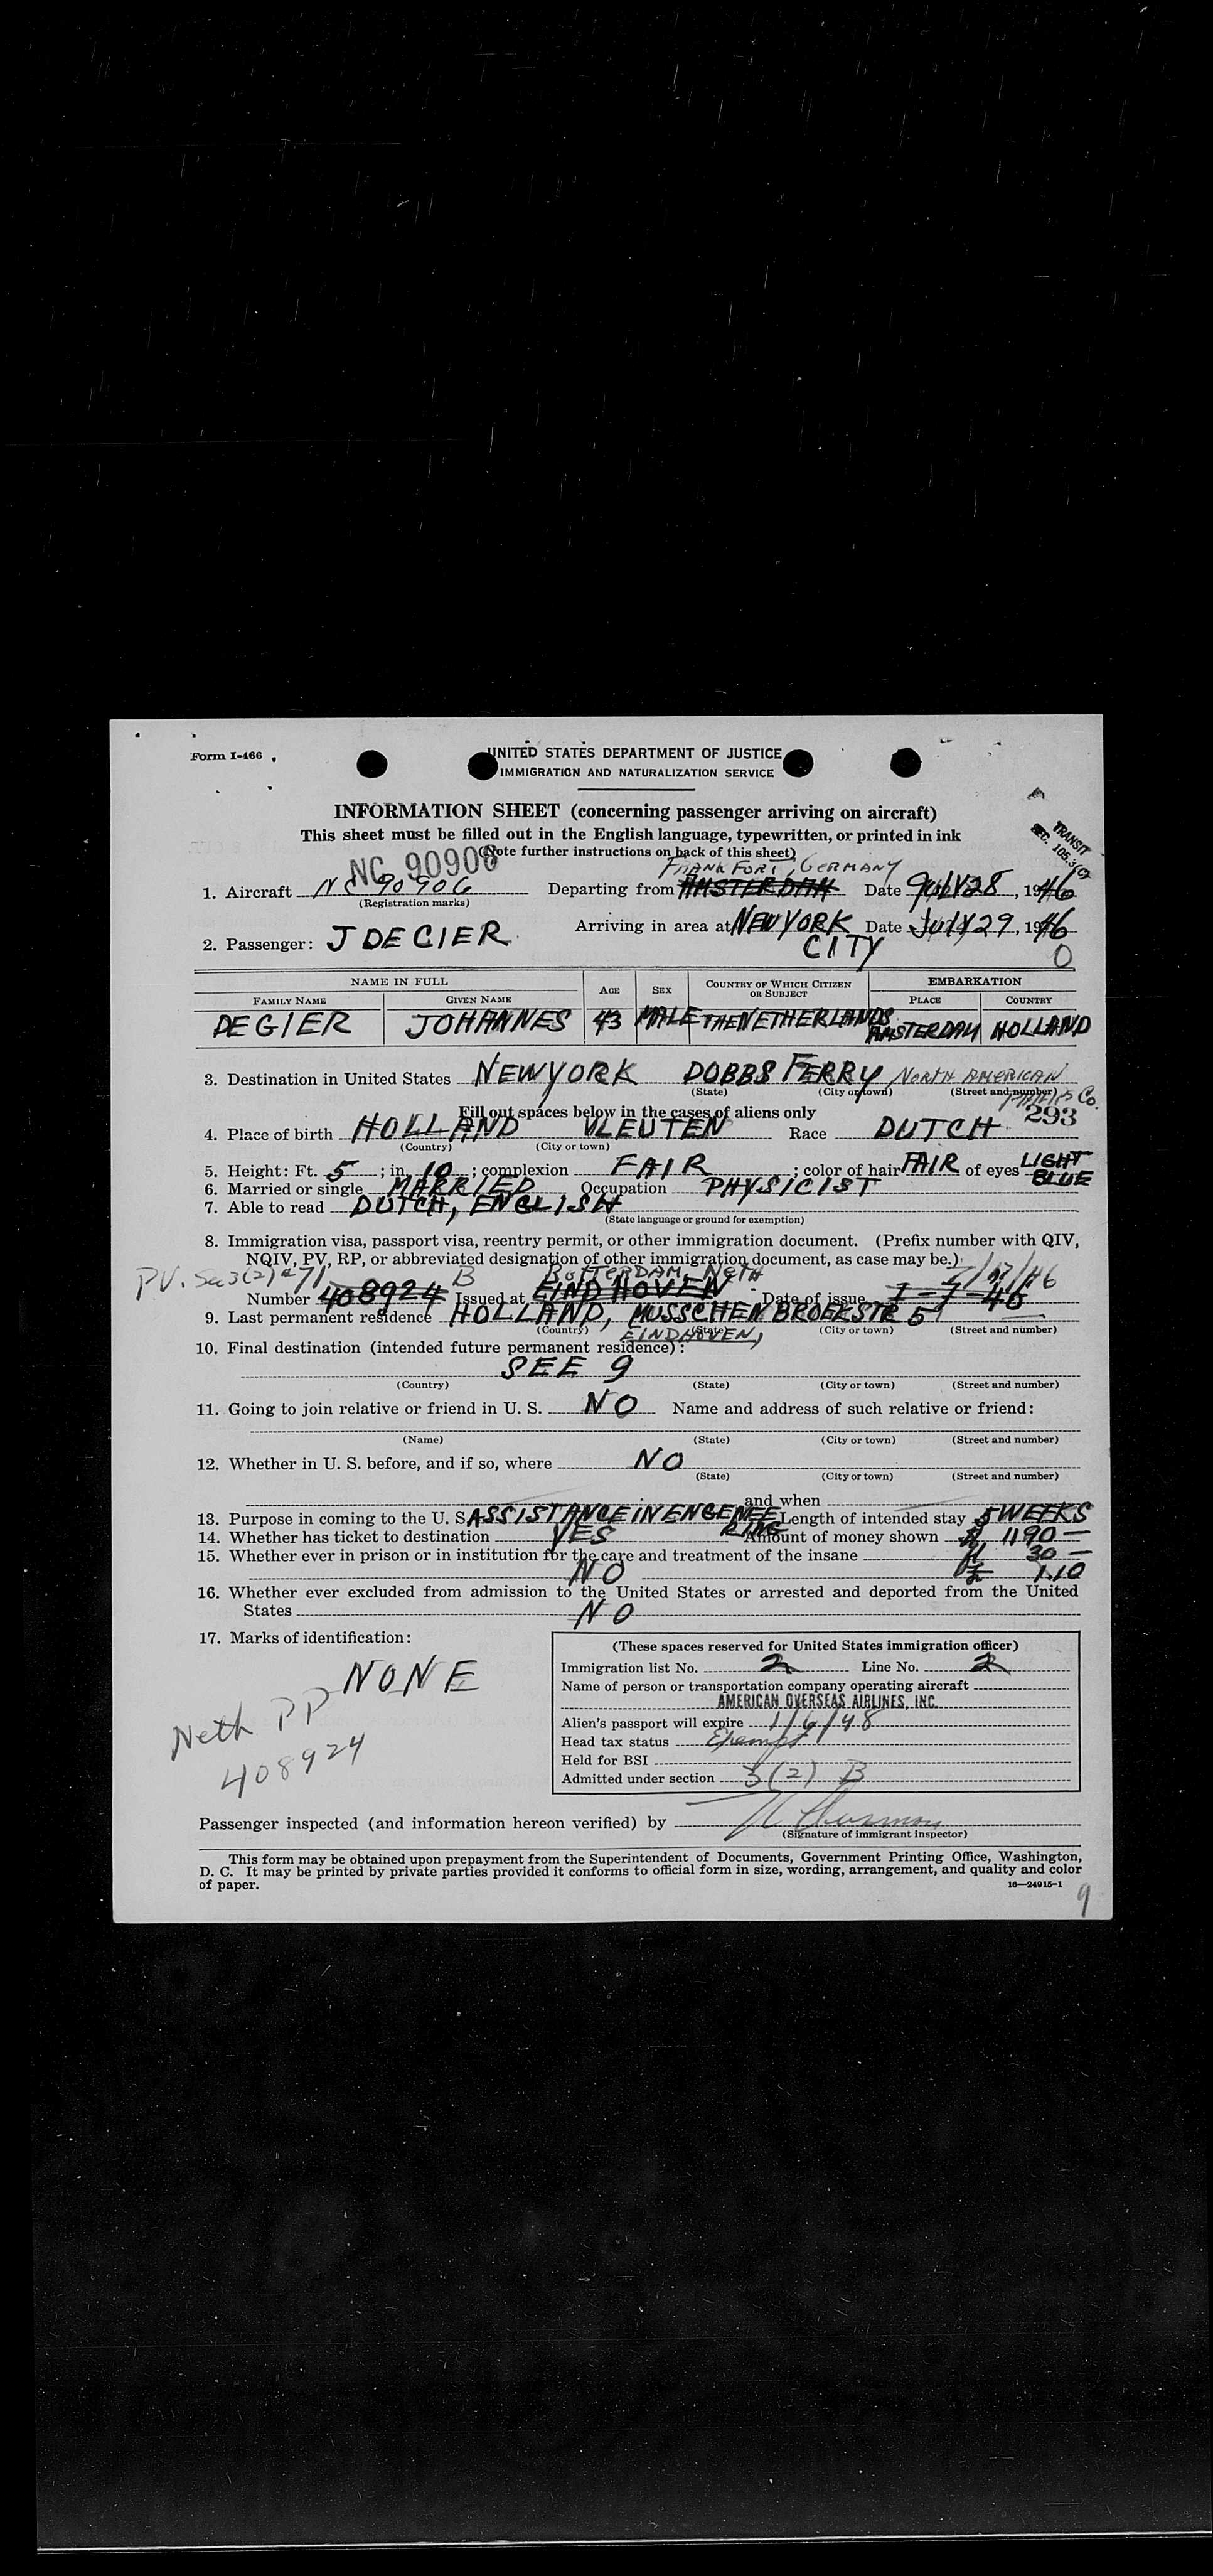 Form I-466
UNITED STATES DEPARTMENT OF JUSTICE
IMMIGRATION AND NATURALIZATION SERVICE
INFORMATION SHEET (concerning passenger arriving on aircraft)
This sheet must be filled out in the English language, typewritten, or printed in ink
(Note further instructions on back of this sheet)
TRANSIT
SEC. 105.3(c)
NC 90906
FRANKFORT, GERMANY
1. Aircraft NC 90906 Departing from AMSTERDAM Date July 28, 1946
(Registration marks)
Arriving in area at NEW YORK CITY Date July 29, 1946
2. Passenger: J DE GIER
0
NAME IN FULL AGE SEX COUNTRY OF WHICH CITIZEN OR SUBJECT EMBARKATION
FAMILY NAME GIVEN NAME PLACE COUNTRY
DE GIER JOHANNES 43 MALE THE NETHERLANDS AMSTERDAM HOLLAND
3. Destination in United States NEW YORK DOBBS FERRY NORTH AMERICAN PHILIPS Co.
(State) (City or town) (Street and number)
Fill out spaces below in the cases of aliens only
293
4. Place of birth HOLLAND VLEUTEN Race DUTCH
(Country) (City or town)
5. Height: Ft. 5; in. 10; complexion FAIR; color of hair FAIR of eyes LIGHT BLUE
6. Married or single MARRIED Occupation PHYSICIST
7. Able to read DUTCH, ENGLISH
(State language or ground for exemption)
8. Immigration visa, passport visa, reentry permit, or other immigration document. (Prefix number with QIV,
NQIV, PV, RP, or abbreviated designation of other immigration document, as case may be.)
PV. Sec 3(2) #71 B ROTTERDAM, NETH
Number 408924 Issued at EINDHOVEN Date of issue
9. Last permanent residence HOLLAND, MUSSCHENBROEKSTR 5
(Country) (State) (City or town) (Street and number)
EINDHOVEN,
10. Final destination (intended future permanent residence):
SEE 9
(Country) (State) (City or town) (Street and number)
11. Going to join relative or friend in U. S. NO Name and address of such relative or friend:
(Name) (State) (City or town) (Street and number)
12. Whether in U. S. before, and if so, where NO
(State) (City or town) (Street and number)
and when
13. Purpose in coming to the U. S. ASSISTANCE IN ENGENEERING Length of intended stay 5 WEEKS
14. Whether has ticket to destination YES Amount of money shown $ 1190 —
15. Whether ever in prison or in institution for the care and treatment of the insane fl 30 —
NO £ 1.10
16. Whether ever excluded from admission to the United States or arrested and deported from the United
States NO
17. Marks of identification:
NONE
Neth PP
408924
(These spaces reserved for United States immigration officer)
Immigration list No. 2 Line No. 2
Name of person or transportation company operating aircraft
AMERICAN OVERSEAS AIRLINES, INC.
Alien's passport will expire 1/6/48
Head tax status Exempt
Held for BSI
Admitted under section 3(2) B
Passenger inspected (and information hereon verified) by
(Signature of immigrant inspector)
This form may be obtained upon prepayment from the Superintendent of Documents, Government Printing Office, Washington,
D. C. It may be printed by private parties provided it conforms to official form in size, wording, arrangement, and quality and color
of paper.
16—24915-1
9